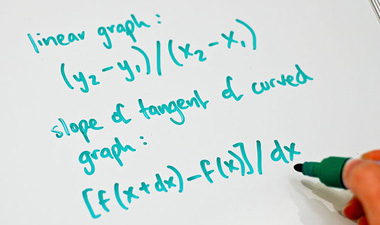 linear graph:
(y₂-y₁)/(x₂-x₁)
slope of tangent of curved
graph:
[f(x+dx)-f(x)]/dx